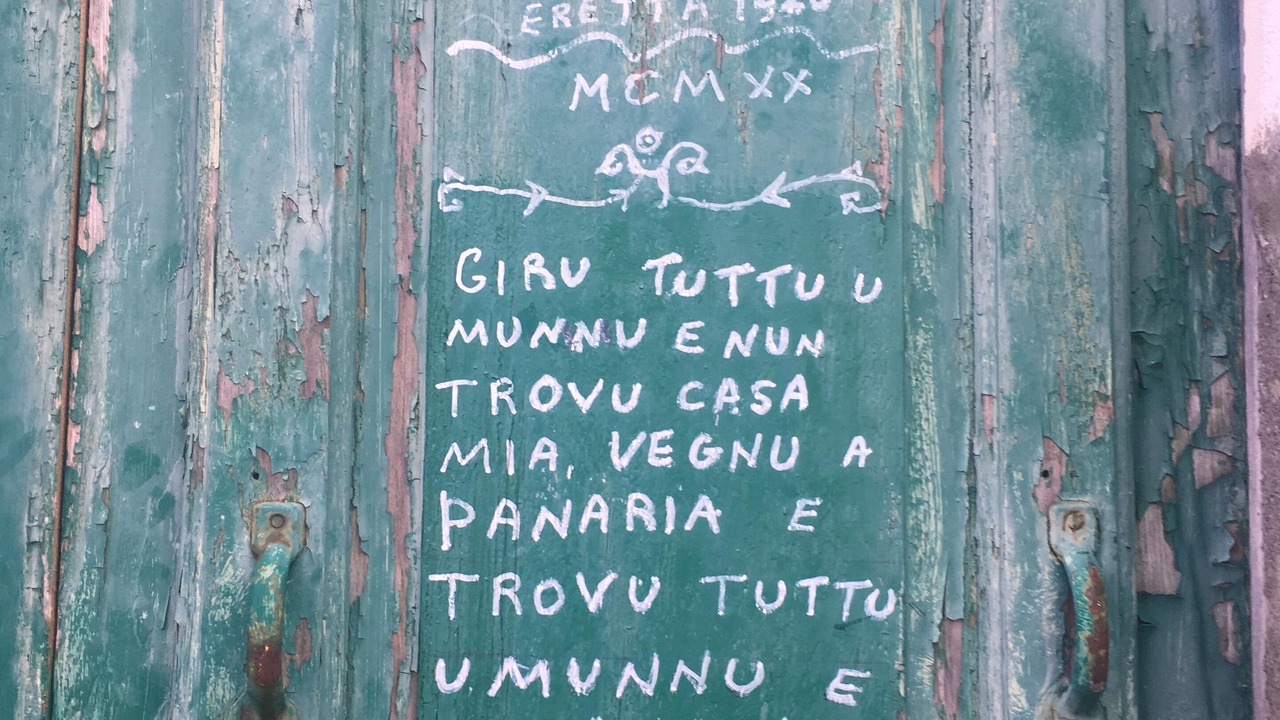 ERETTA 1920
MCMXX
GIRU TUTTU U
MUNNU E NUN
TROVU CASA
MIA, VEGNU A
PANARIA E
TROVU TUTTU
UMUNNU E